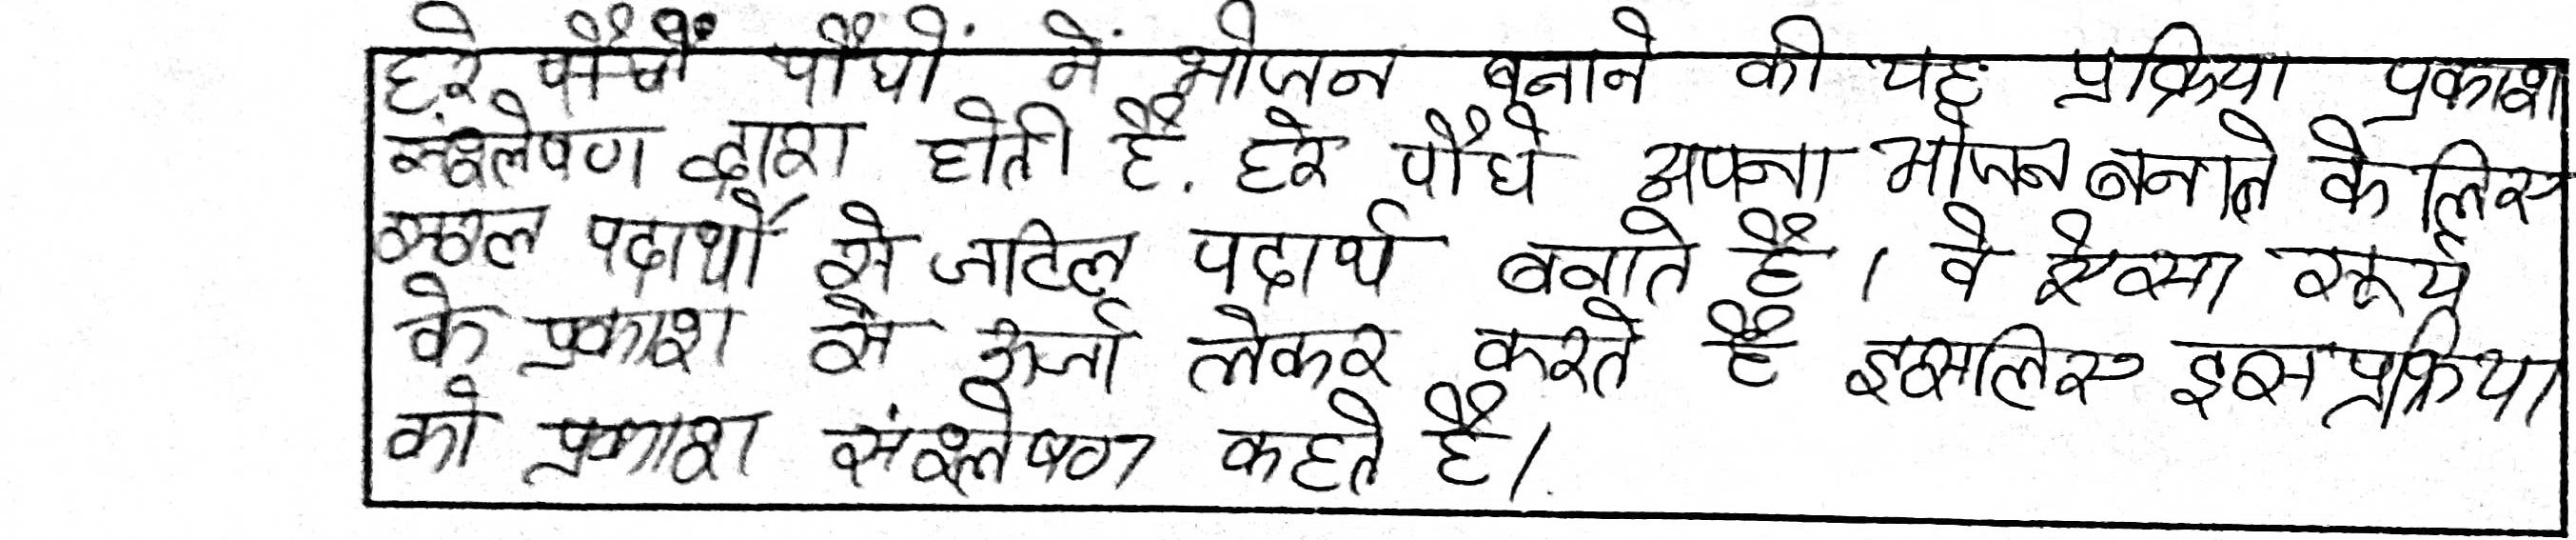 हरे पौधों में भोजन बनाने की यह प्रक्रिया प्रकाश
संश्लेषण द्वारा होती है. हरे पौधे अपना भोजन बनाने के लिए
सरल पदार्थों से जटिल पदार्थ बनाते है। वे ऐसा सूर्य
के प्रकाश से ऊर्जा लेकर करते है इसलिए इस प्रक्रिया
को प्रकाश संश्लेषण कहते है।